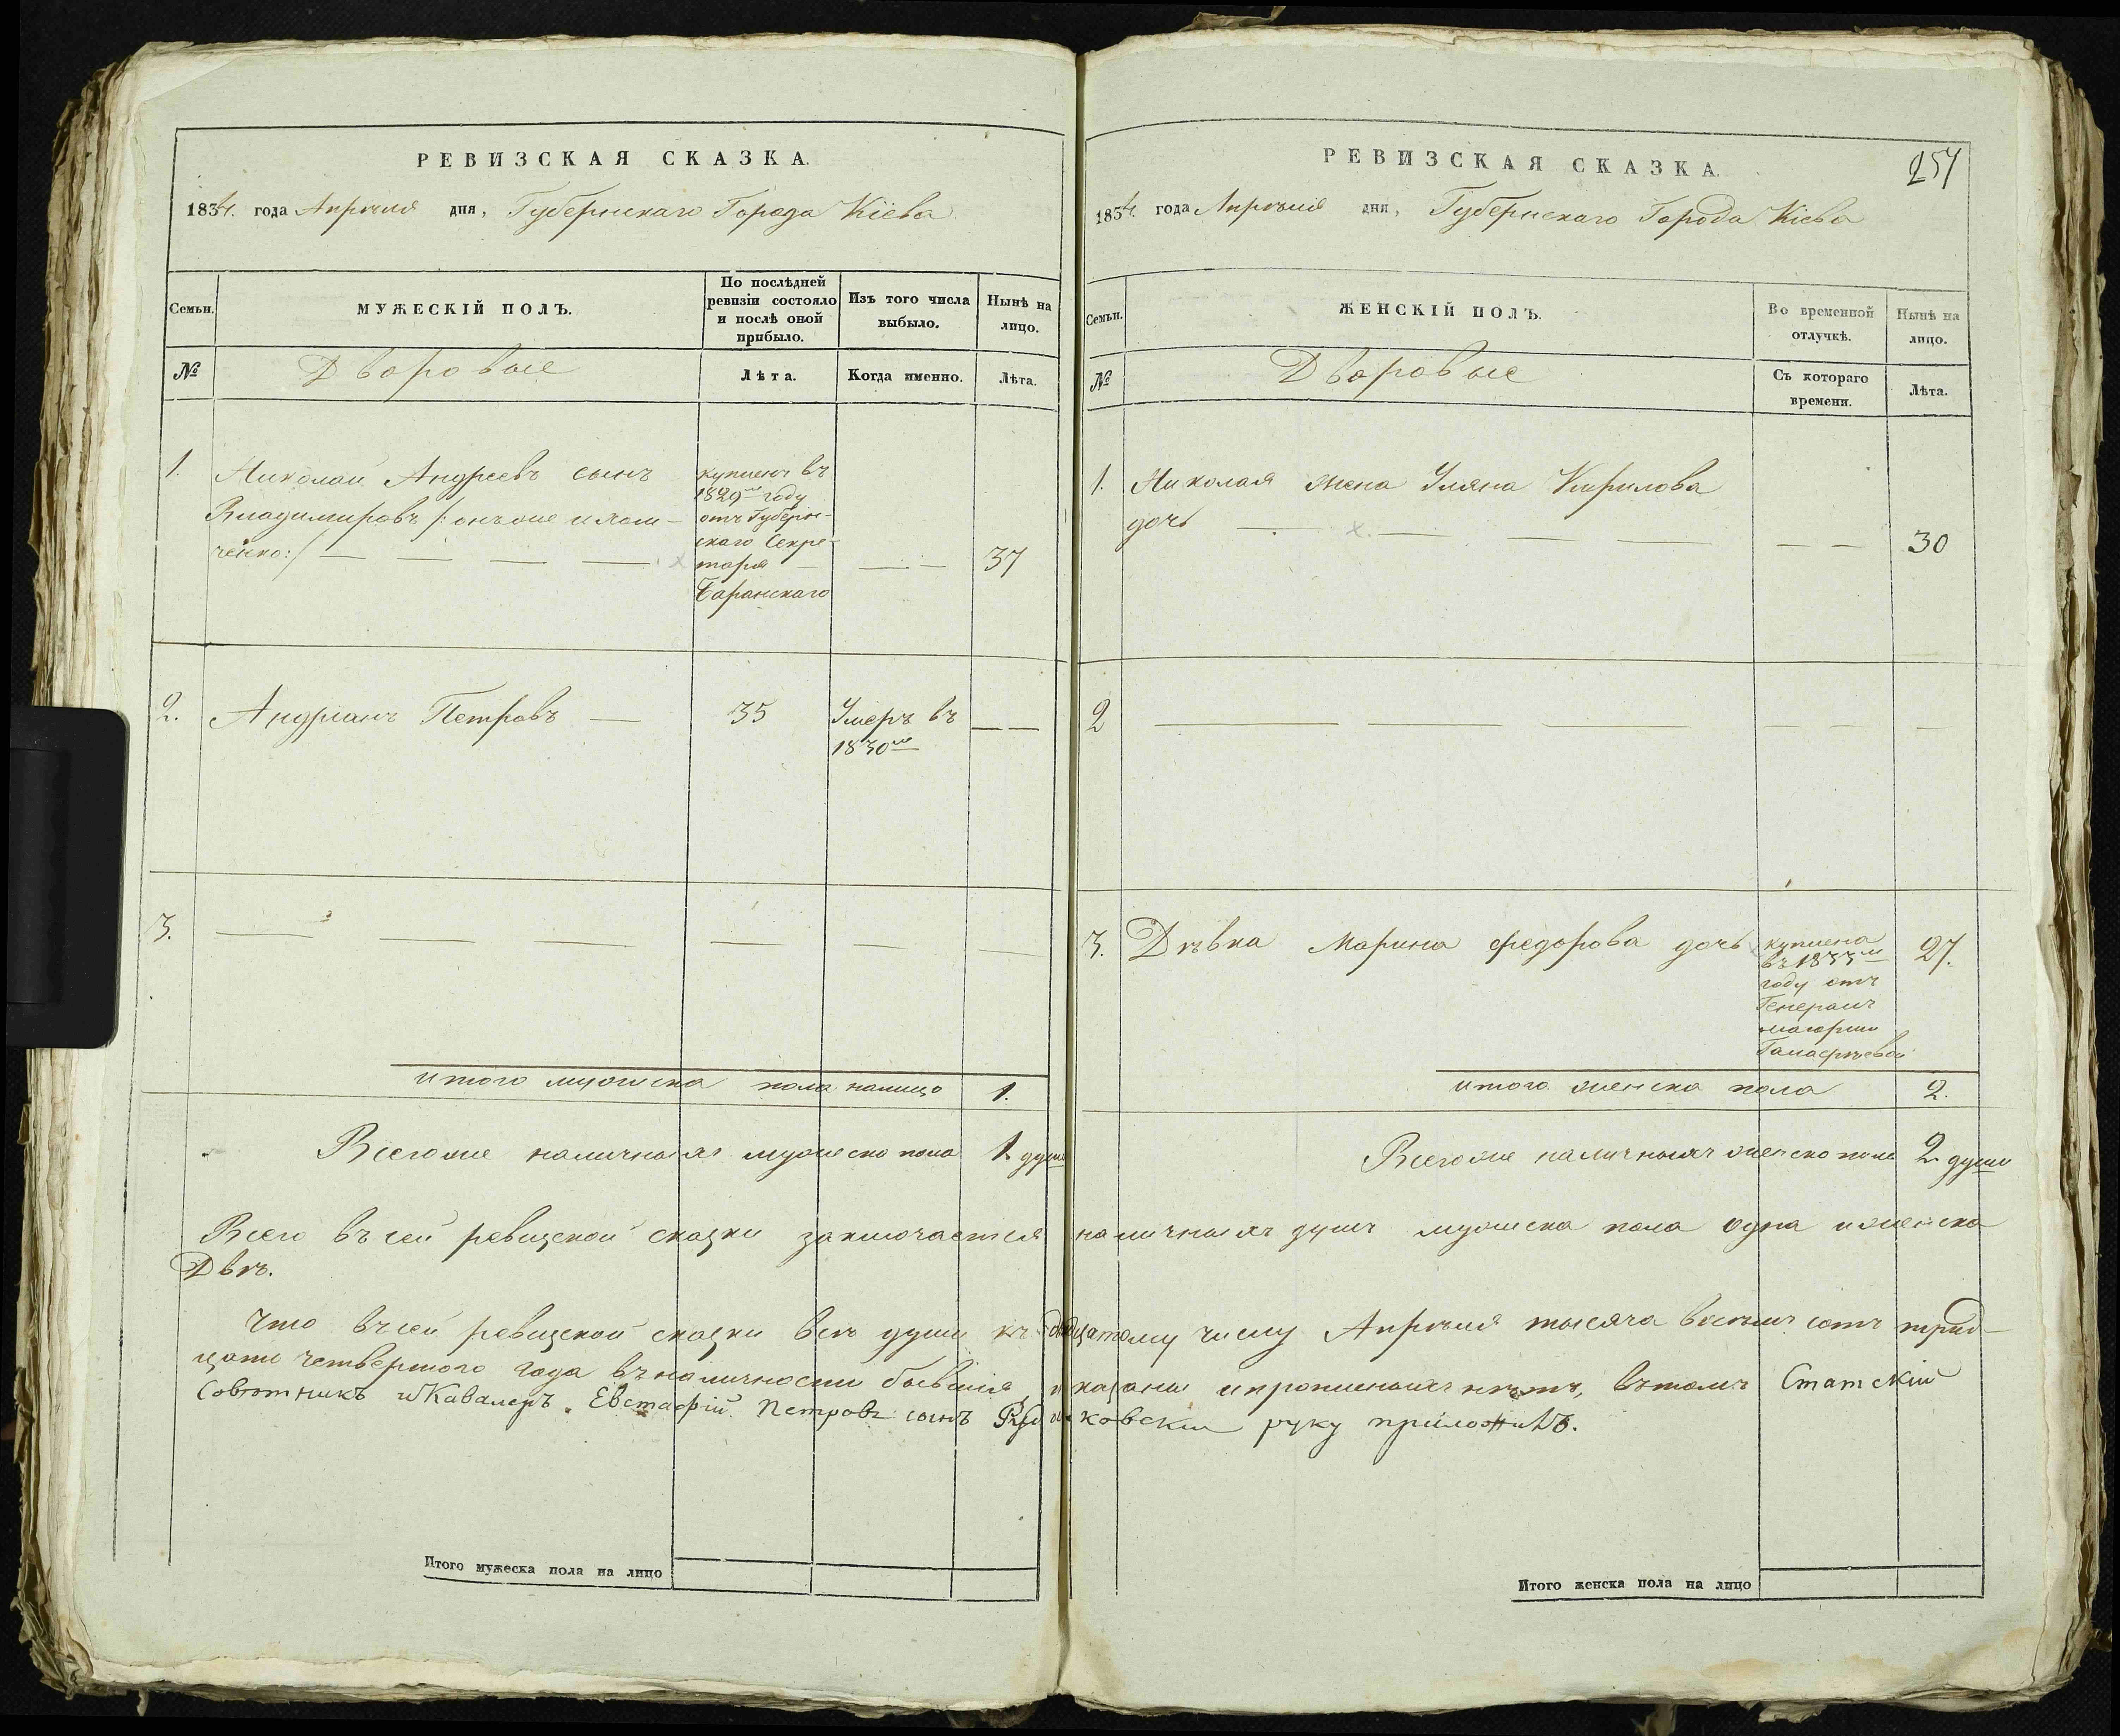 РЕВИЗСКАЯ СКАЗКА.
1834. года Апрѣля дня, Губернскаго Города Кіева
Семьи.
МУЖЕСКІЙ ПОЛЪ.
По послѣдней
ревизіи состояло
и послѣ оной
прибыло.
Изъ того числа
выбыло.
Нынѣ на
лицо.
№
Дворовые
Лѣта.
Когда именно.
Лѣта.
1. Николай Андреевъ сынъ
Владимировъ /: онъ же
ченко :/
купленъ въ
1829м году
отъ Губерн-
скаго Секре-
таря
Баранскаго
37
2. Андріанъ Петровъ — 35 Умеръ въ
1830м
3.
итого мужска пола налицо 1.
Всегоже наличныхъ мужеско пола 1 душа
РЕВИЗСКАЯ СКАЗКА.
257
1834. года Апрѣля дня, Губернскаго Города Кіева
Семьи.
ЖЕНСКІЙ ПОЛЪ.
Во временной
отлучкѣ.
Нынѣ на
лицо.
№
Дворовые
Съ котораго
времени.
Лѣта.
1. Николая жена Уляна Кирилова
дочь 30
2
3. Дѣвка Марина Федорова дочь 27.
куплена
въ 1833м
году отъ
Генералъ
маіорши
итого женска пола 2.
Всегоже наличныхъ женско пола 2 души
Всего въ сей ревизской сказки заключается наличныхъ душъ мужеска пола одна и женска
Двѣ.
Что въ сей ревизской сказки всѣ души къ числу Апрѣля тысяча восемь сотъ трид-
цать четвертого года въ наличности бывшія, показаны и прописныхъ нѣтъ, въ томъ Статскій
Совѣтникъ и Кавалеръ Евстафій Петровъ сынъ Рудыковскій руку приложилъ.
Итого мужеска пола на лицо
Итого женска пола на лицо